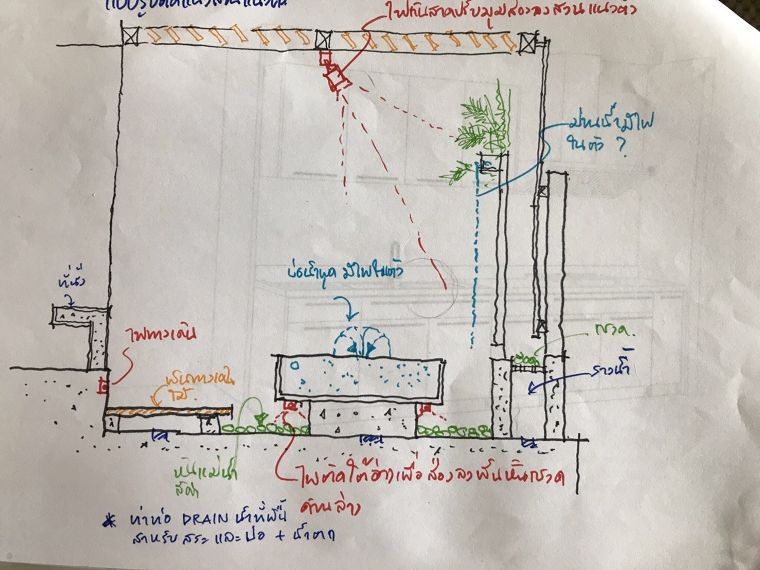 แบบรูปตัดแนวสวนแนวตั้ง
ไฟกันสาดปรับมุมส่องลงสวนแนวตัว
ม่านน้ำมีไฟ
ในตัว ?
บ่อน้ำพุด มีไฟในตัว
ที่นั่ง
ไฟทางเดิน
กรวด.
รางน้ำ
พื้นทางเดิน
ไม้
หินแม่น้ำ
สีดำ
ไฟติดใต้อ่างเพื่อส่องลงพื้นหินกรวด
ด้านล่าง
* ทำท่อ DRAIN น้ำที่พื้น
สำหรับสระ และบ่อ + น้ำตก